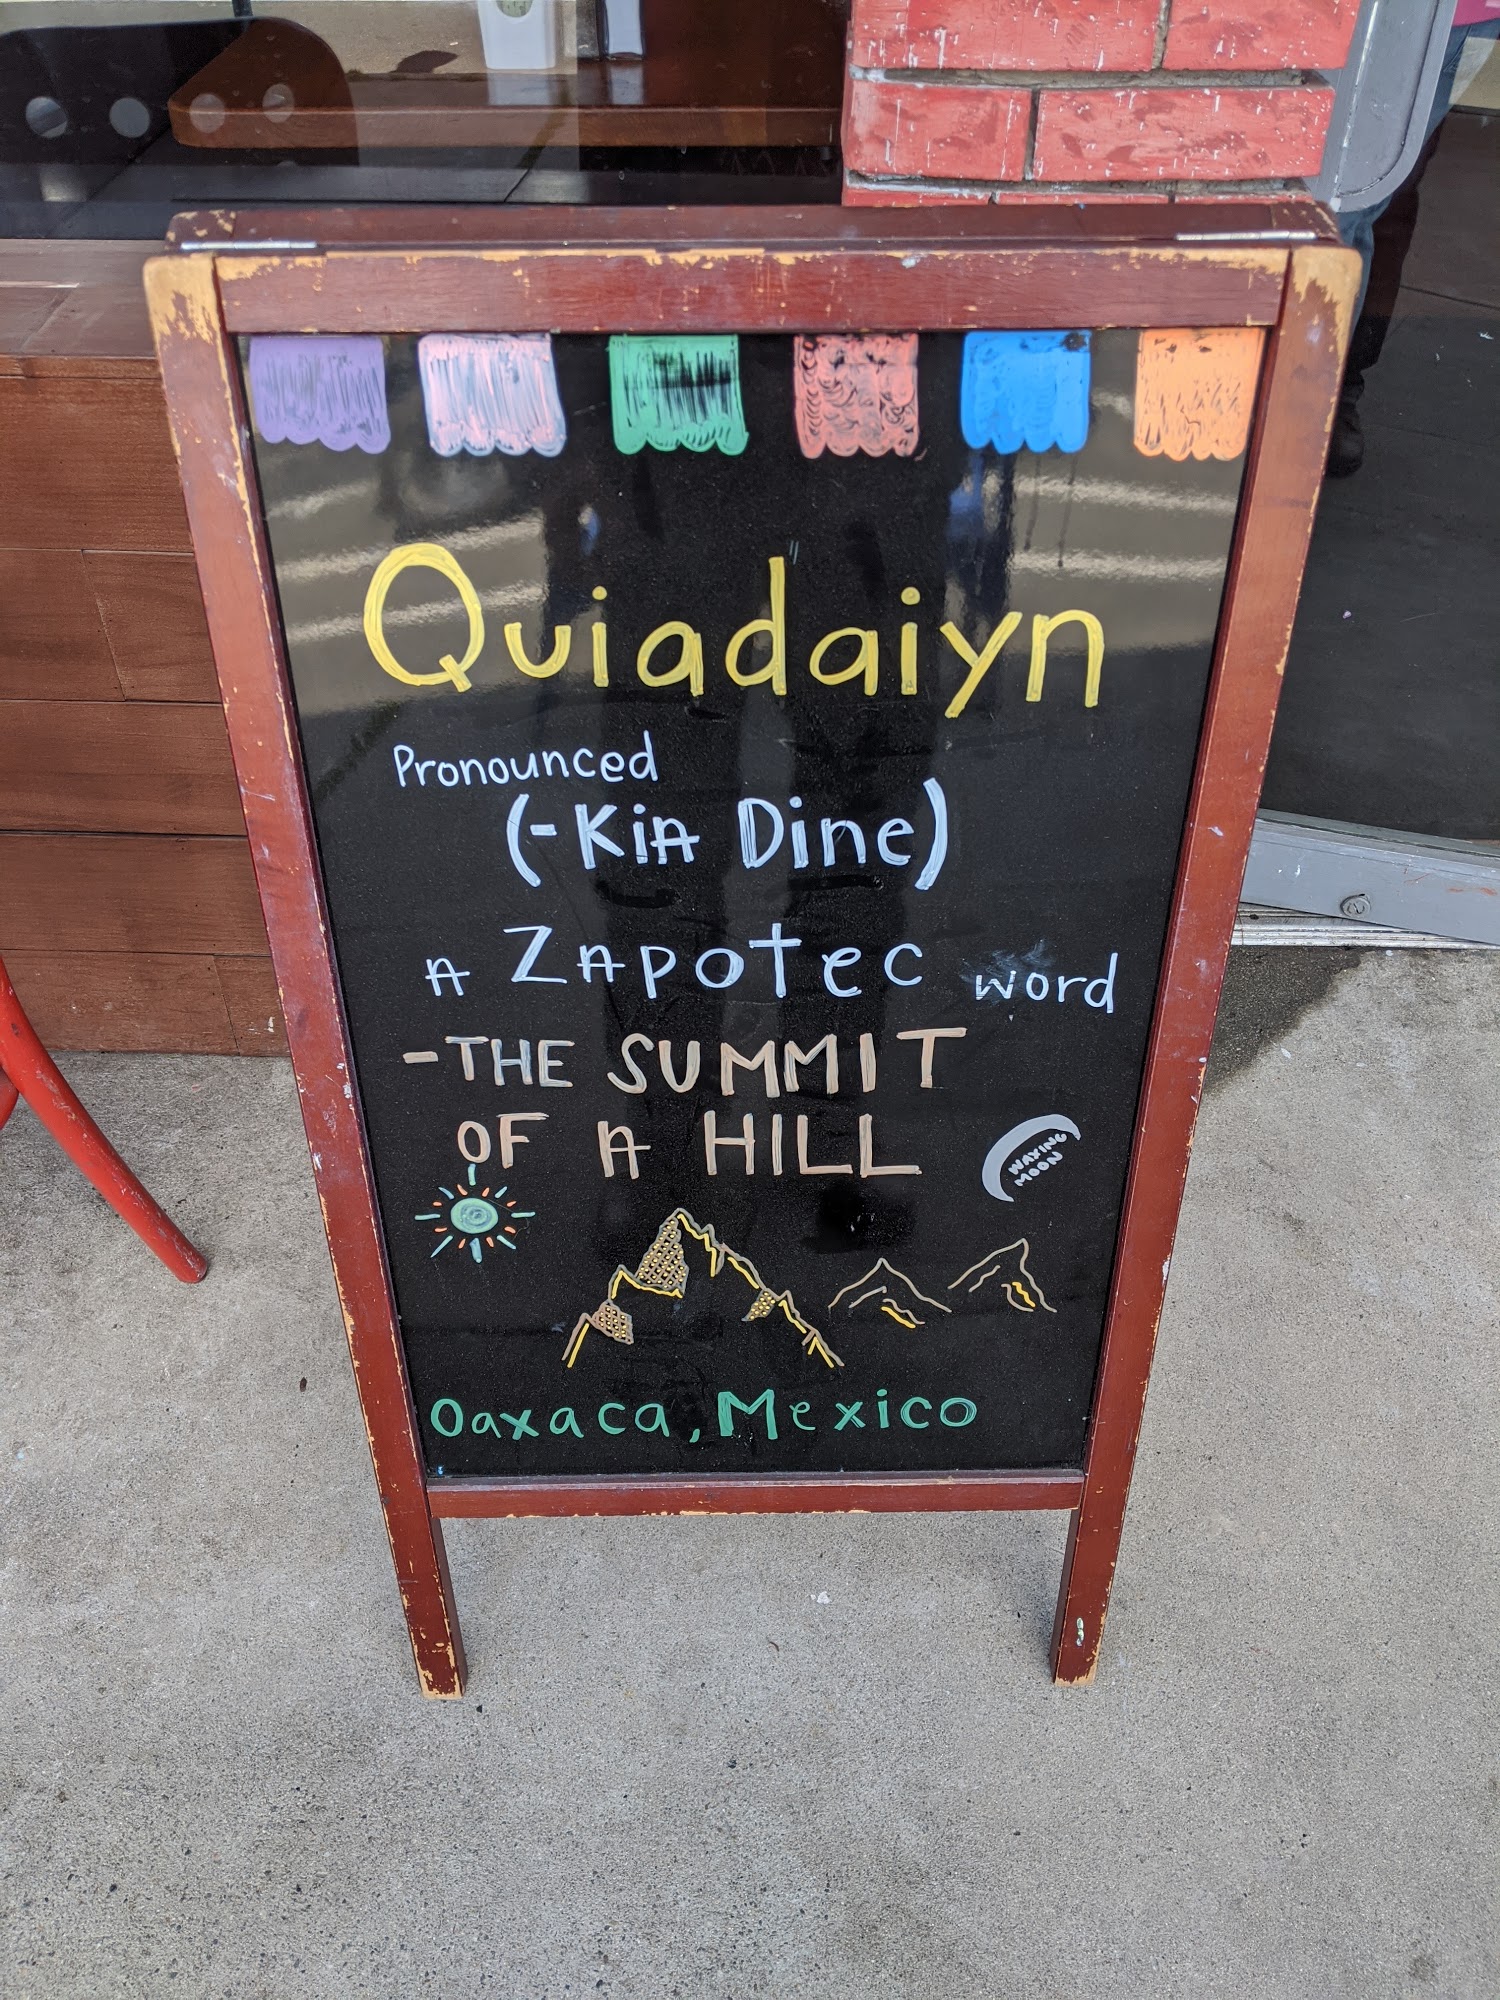 Quiadaiyn
Pronounced
(-Kia Dine)
a Zapotec word
-THE SUMMIT
OF A HILL
WAXING
MOON
Oaxaca, Mexico